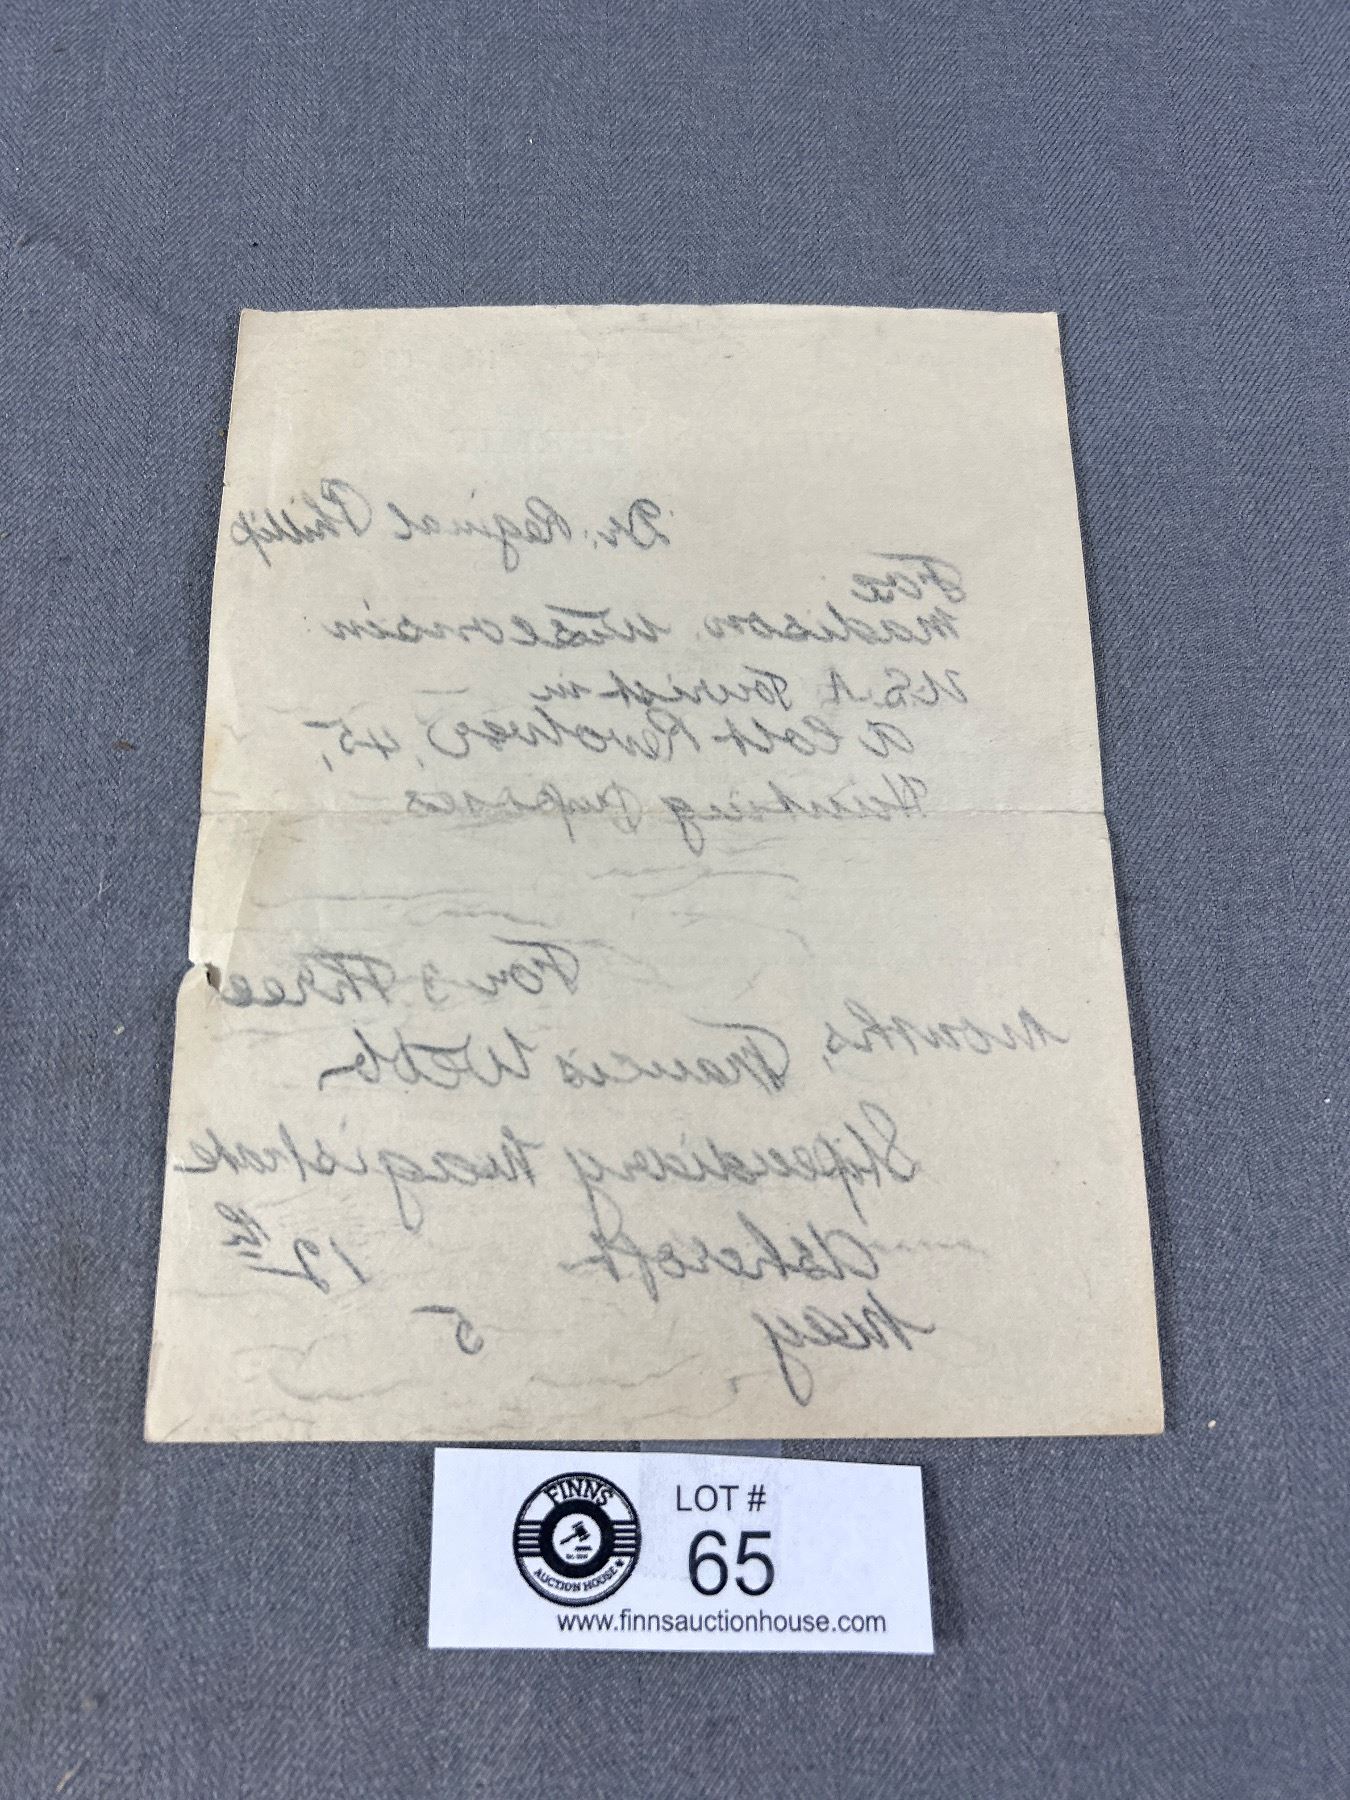 Dr. Reginal Phillip
Fox
Madison, Wisconsin
U.S.A. Tourist in
a Colt Revolver, 45,
Hunting Purposes
For 3 Three
Months, Francis Webb
Stipendiary Magistrate
Ashcroft 12th
May 5
FINNS
AUCTION HOUSE
LOT #
65
www.finnsauctionhouse.com